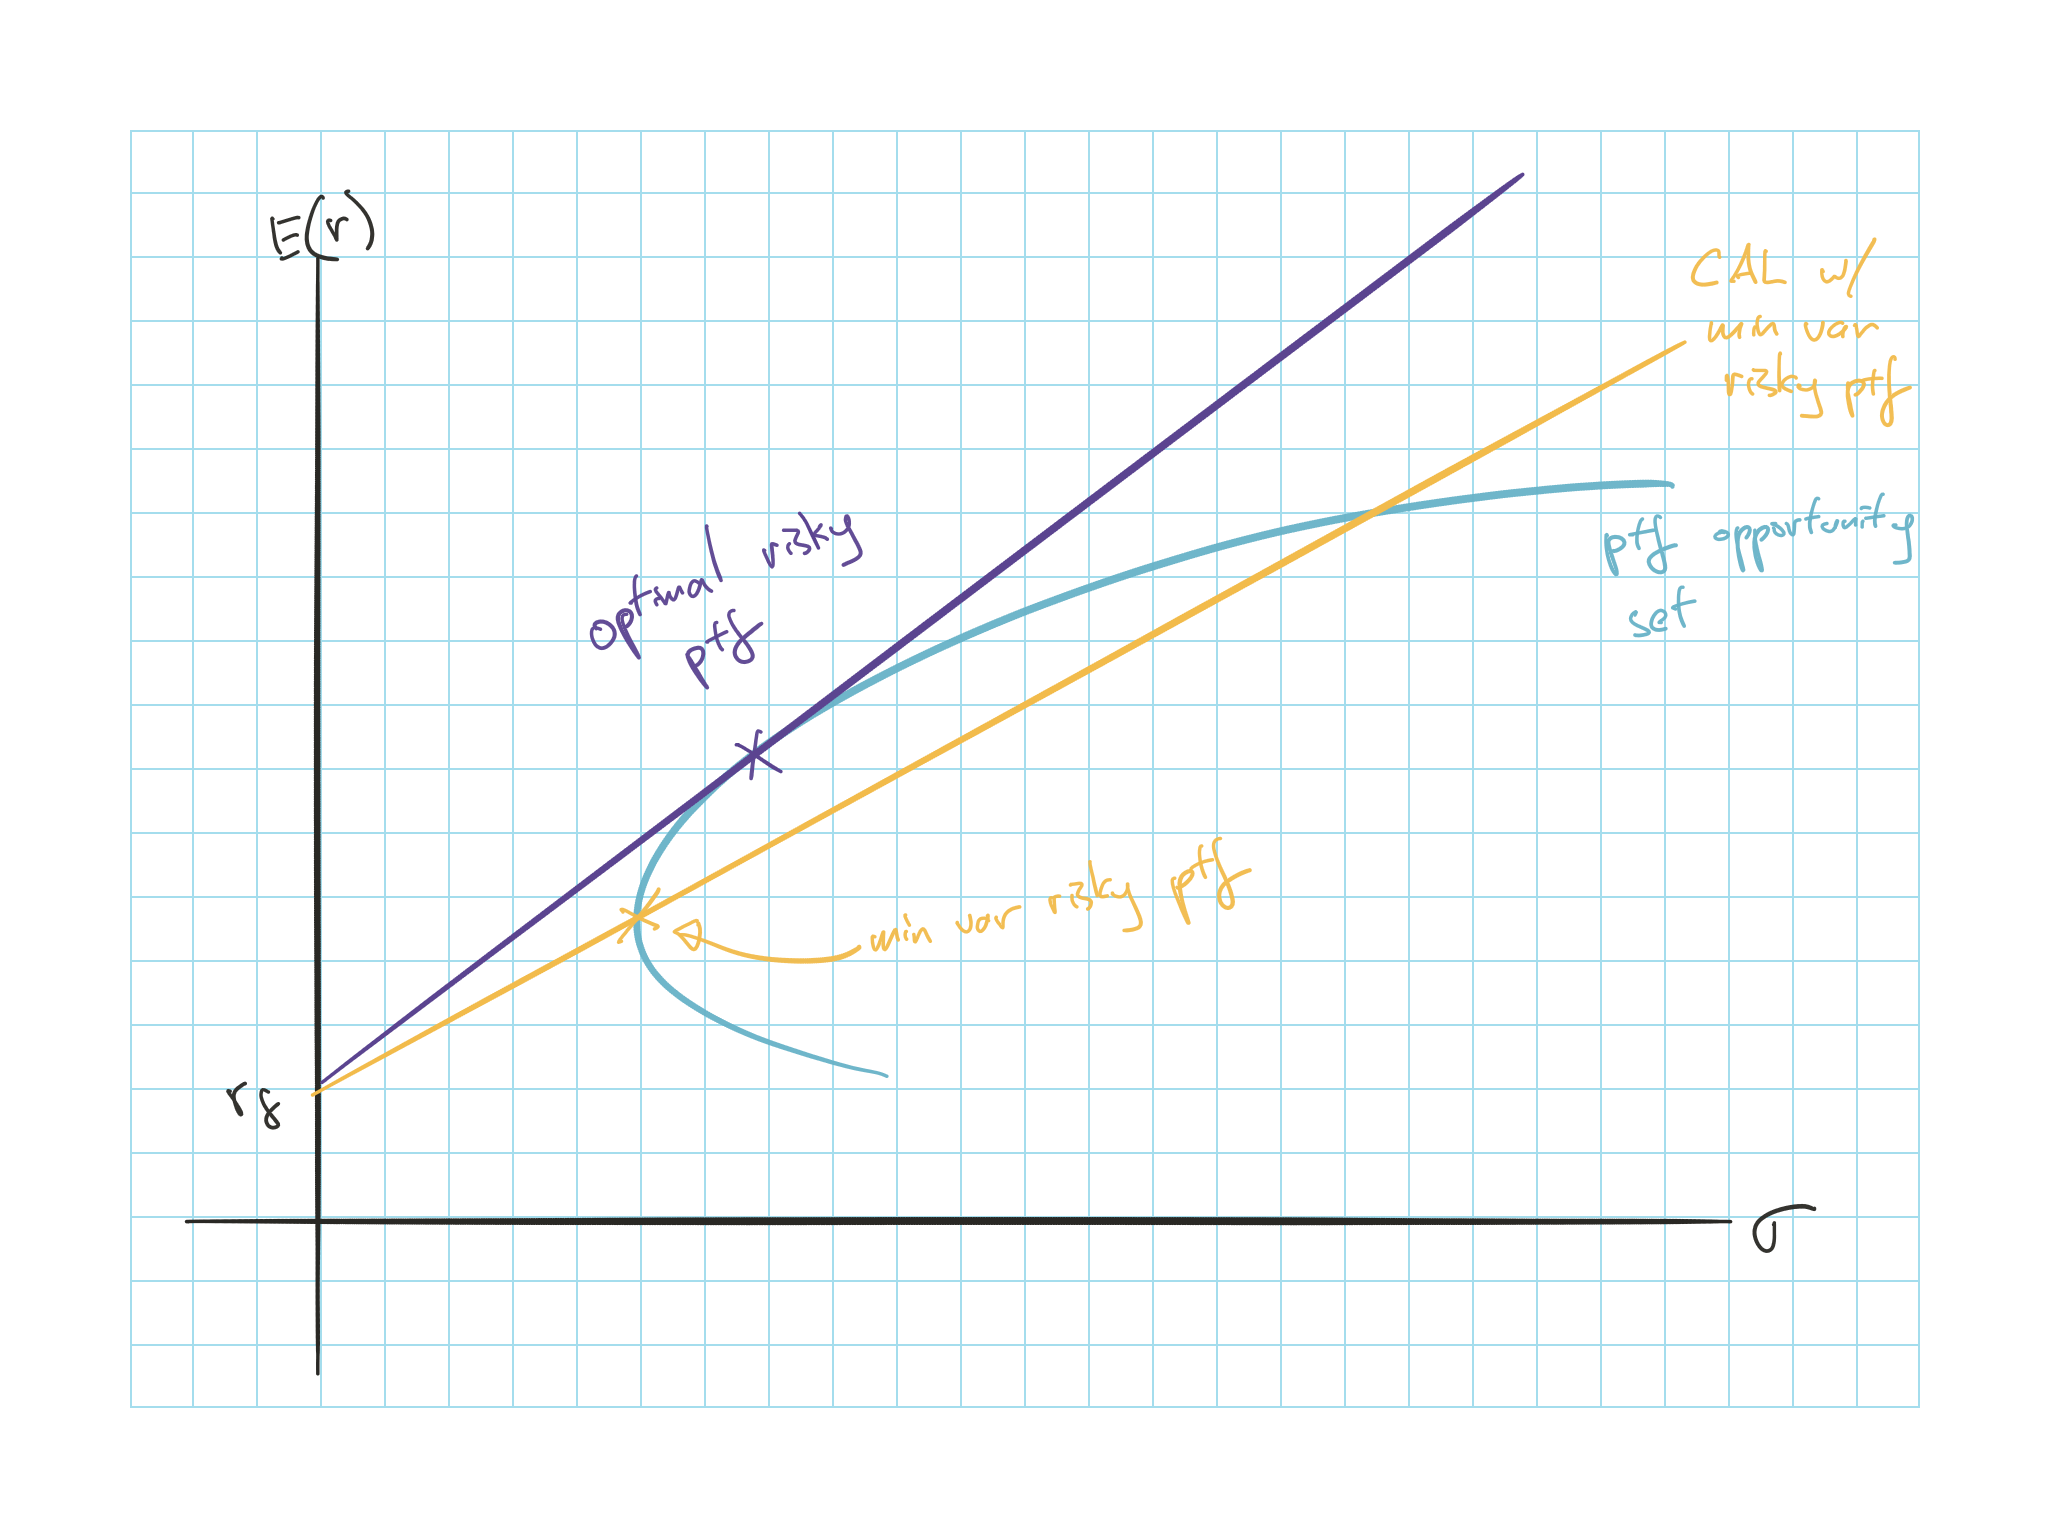 E(r)
CAL w/
min var
risky ptf
optimal risky
ptf
ptf opportunity
set
min var risky ptf
rf
σ